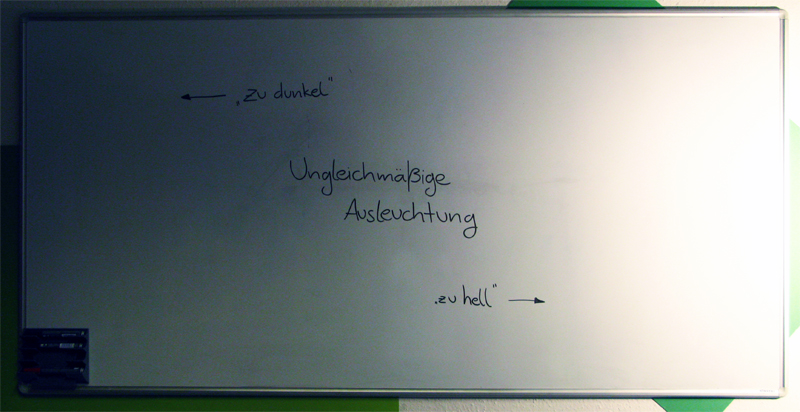 „zu dunkel“
Ungleichmäßige
Ausleuchtung
„zu hell“